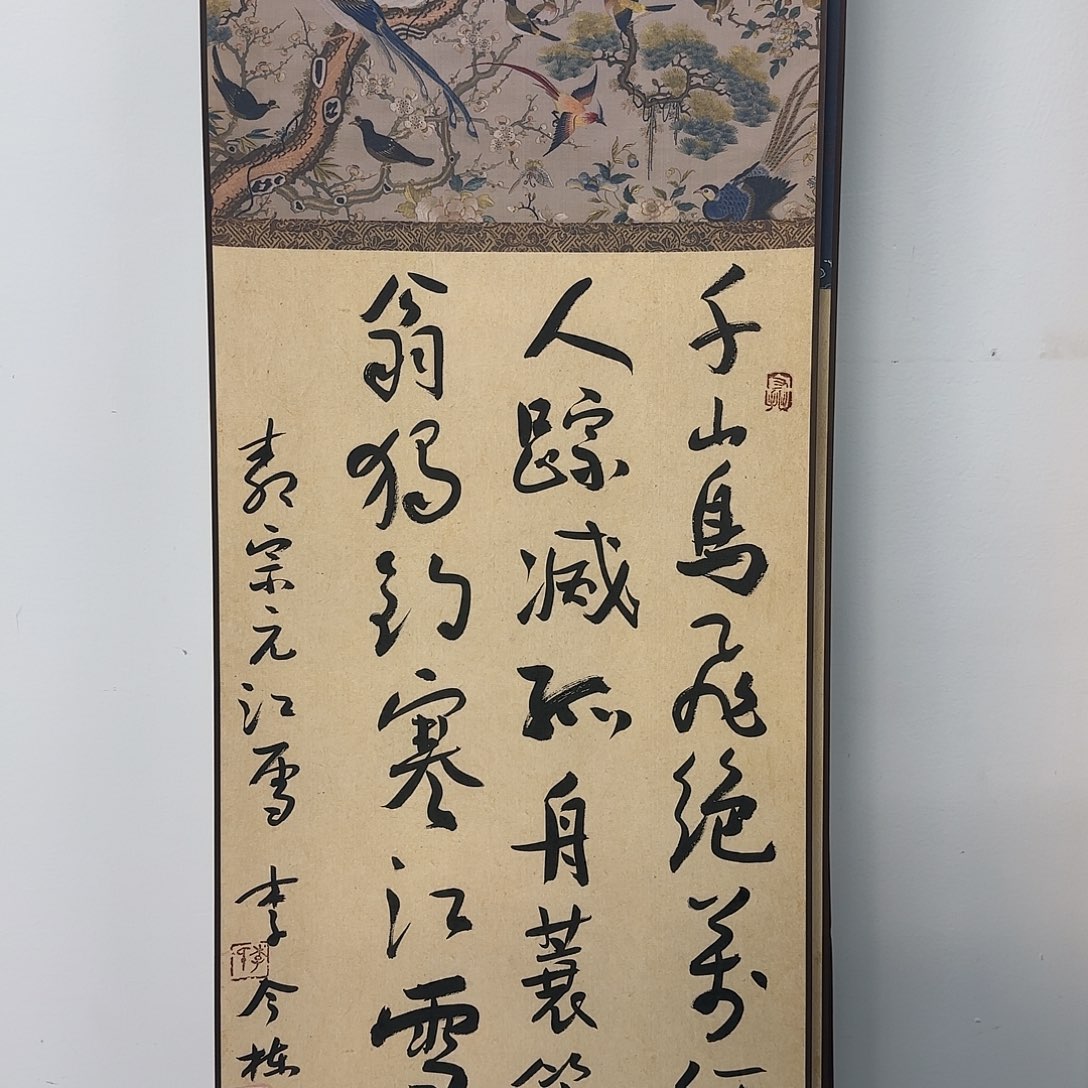 千山鳥飛絕萬徑
人踪滅孤舟蓑笠
翁獨釣寒江雪
柳宗元江雪 李今栋